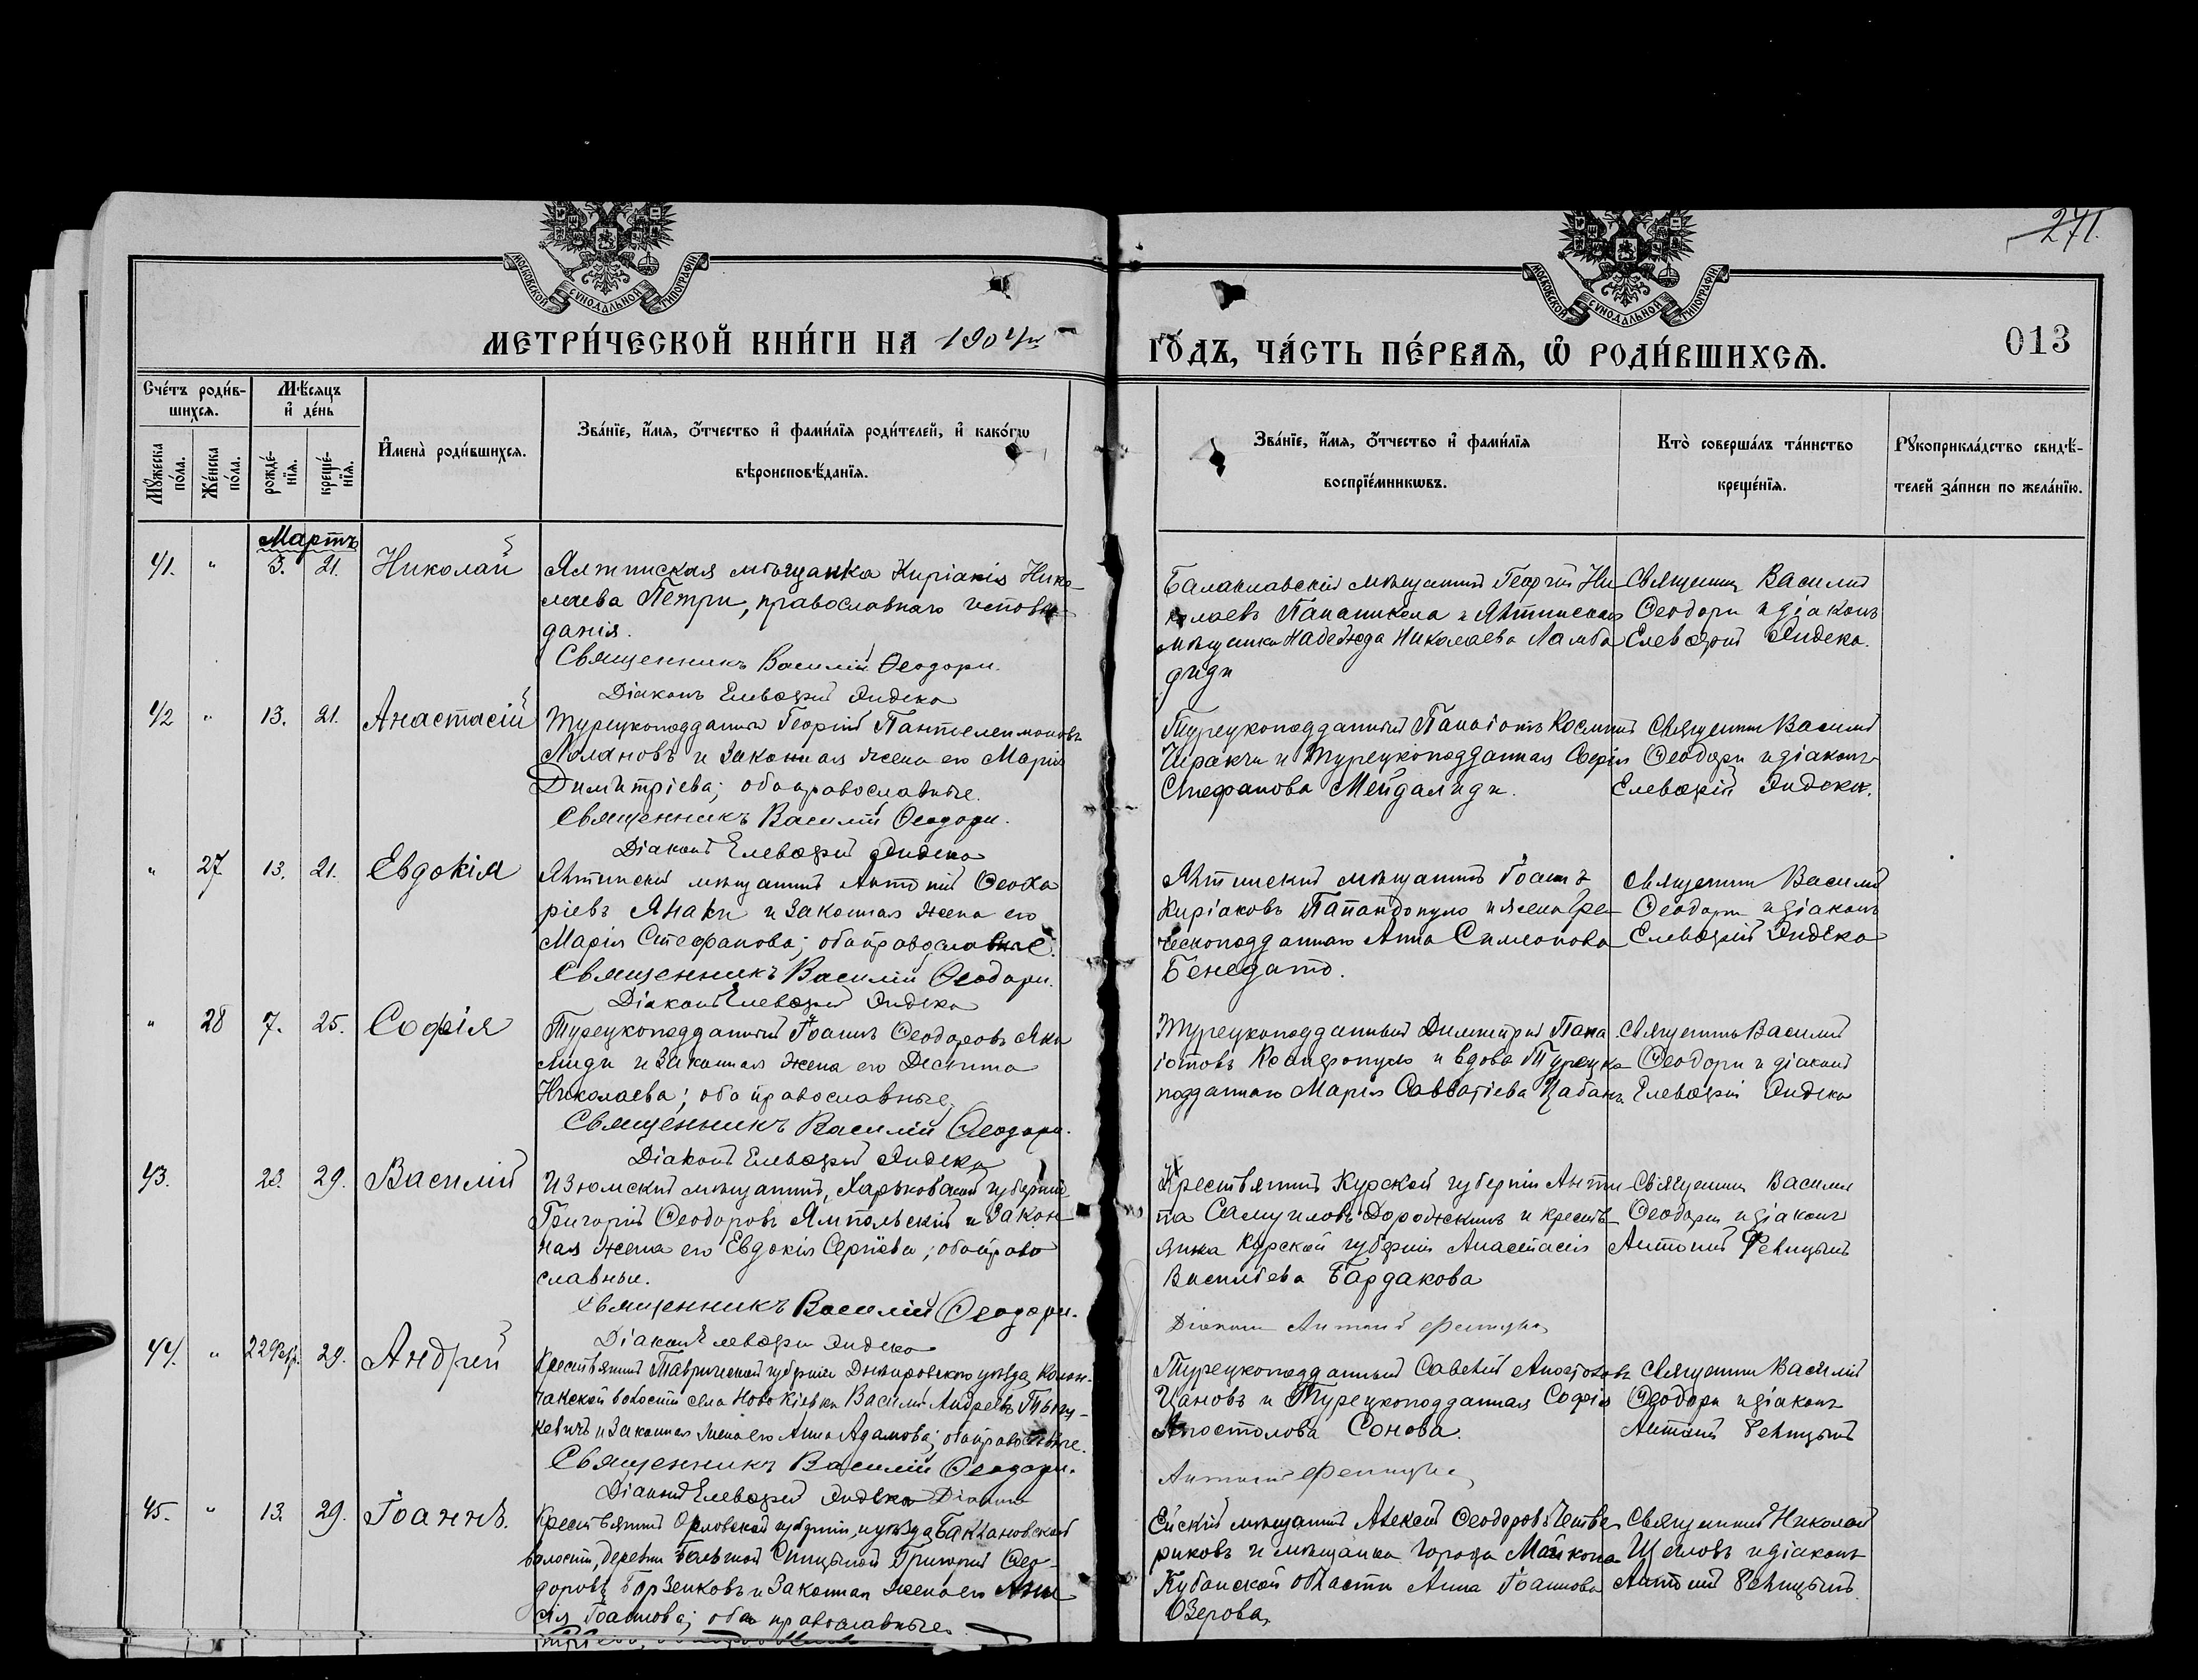 271.
МОСКОВСКОЙ СѴНОДАЛЬНОЙ ТИПОГРАФІИ
МОСКОВСКОЙ СѴНОДАЛЬНОЙ ТИПОГРАФІИ
МЕТРИ́ЧЕСКОЙ КНИ́ГИ НА 1904й
ГО́ДЪ, ЧА́СТЬ ПЕ́РВАѦ, Ѡ҆ РОДИ́ВШИХСѦ.
013
Сче́тъ роди́в-
шихсѧ.
Мꙋ́жеска по́ла.
Же́нска по́ла.
Мѣ́сѧцъ
и҆ де́нь
рожде́-
нїѧ.
креще́-
нїѧ.
И҆мена̀ роди́вшихсѧ.
Зва́нїе, и҆́мѧ, ѻ҆́тчество и҆ фами́лїѧ роди́телей, и҆ како́гѡ
вѣроисповѣ́данїѧ.
Зва́нїе, и҆́мѧ, ѻ҆́тчество и҆ фами́лїѧ
воспрїе́мникѡвъ.
Кто̀ соверша́лъ та́инство
креще́нїѧ.
Рꙋкоприкла́дство свидѣ́-
телей за́писи по жела́нїю.
Мартъ
41. " 3. 21. Николай
Ялтинская мѣщанка Киріакія Нико
лаева Петри, православнаго исповѣ
данія.
Священникъ Василій Ѳеодори.
Діаконъ Елевѳерій Яидека
Балаклавскій мѣщанинъ Георгій Ни
колаевъ Папаникола и Ялтинская
мѣщанка Надежда Николаева Ламба
фиди
Священникъ Василій
Ѳеодори и діаконъ
Елевѳерій Яидека.
42 " 13. 21. Анастасій
Турецкоподданный Георгій Пантелеимоновъ
и законная жена его Марія
Димитріева; оба православные.
Священникъ Василій Ѳеодори.
Діаконъ Елевѳерій Яидека
Турецкоподданный Панаіотъ Косминъ
Чиракчи и Турецкоподданная
Стефанова Мейдалиди.
Священникъ Василій
Ѳеодори и діаконъ
Елевѳерій Яидека.
" 27 13. 21. Евдокія
Ялтинскій мѣщанинъ Антоній Ѳеоха
ріевъ Янаки и законная жена его
Марія Стефанова; оба православные.
Священникъ Василій Ѳеодори.
Діаконъ Елевѳерій Яидека
Ялтинскій мѣщанинъ Іоаннъ
Киріаковъ Папандопуло и жена Гре
ческоподданнаго Анна Симеонова
Бенедато.
Священникъ Василій
Ѳеодори и діаконъ
Елевѳерій Яидека
" 28 7. 25. Софія
Турецкоподданный Іоаннъ Ѳеодоровъ
и законная жена его Деспина
Николаева; оба православные,
Священникъ Василій Ѳеодори.
Діаконъ Елевѳерій Яидека
Турецкоподданный Димитрій Пана
іотовъ Ксандропуло и вдова Турецко
подданнаго Марія Савватіева
Священникъ Василій
Ѳеодори и діаконъ
Елевѳерій Яидека
43. 23. 29. Василій
Изюмскій мѣщанинъ, Харьковской губерніи
Григорій Ѳеодоровъ Ямпольскій и закон
ная жена его Евдокія Сергіева; оба право
славные.
Священникъ Василій Ѳеодори.
Діаконъ Елевѳерій Яидека
Крестьянинъ Курской губерніи Анти
па Самуиловъ Дорожкинъ и кресть
янка Курской губерніи Анастасія
Васильева Бардакова
Діаконъ Антоній Феницынъ
Священникъ Василій
Ѳеодори и діаконъ
Антоній Феницынъ
44. " 22 Февр. 29. Андрей
Крестьянинъ Таврической губерніи Днѣпровскаго уѣзда, Калан-
чакской волости села Ново Кіевки Василій Андреевъ
и законная жена его Анна Адамова; оба православные.
Священникъ Василій Ѳеодори.
Діаконъ Елевѳерій Яидека Діаконъ
Турецкоподданный Савелій Апостоловъ
Цановъ и Турецкоподданная Софія
Апостолова Сонова.
Антоній Феницынъ
Священникъ Василій
Ѳеодори и діаконъ
Антоній Феницынъ
45. " 13. 29. Іоаннъ.
Крестьянинъ Орловской губерніи, и уѣзда, Баклановской
волости, деревни Большой Спицыной Григорій Ѳео-
доровъ Борзенковъ и законная жена его
Іоаннова; оба православные
Ейскій мѣщанинъ Алексій Ѳеодоровъ Четве
риковъ и мѣщанка города Майкопа
Кубанской области Анна Іоаннова
Озерова,
Священникъ Николай
Щегловъ и діаконъ
Антоній Феницынъ